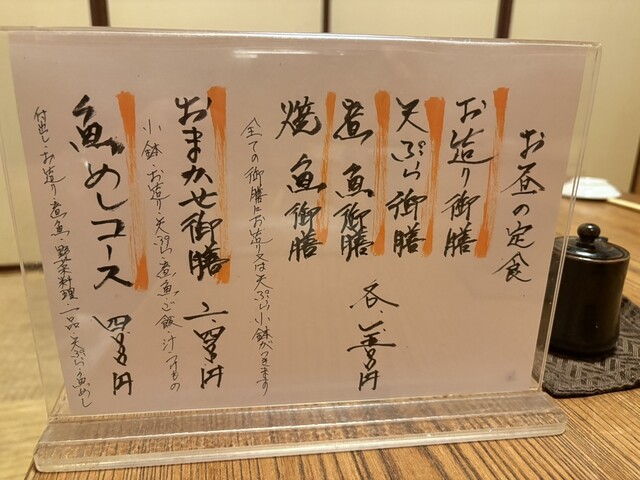 お昼の定食
お造り御膳
天ぷら御膳
煮魚御膳
焼魚御膳
各、
円
全ての御膳にお造り又は天ぷら小鉢がつきます
おまかせ御膳 二、四〇〇円
小鉢・お造り・天ぷら・煮魚・ご飯・汁・つけもの
魚めしコース 四、〇〇〇円
付出し・お造り・煮魚・野菜料理一品・天ぷら・魚めし